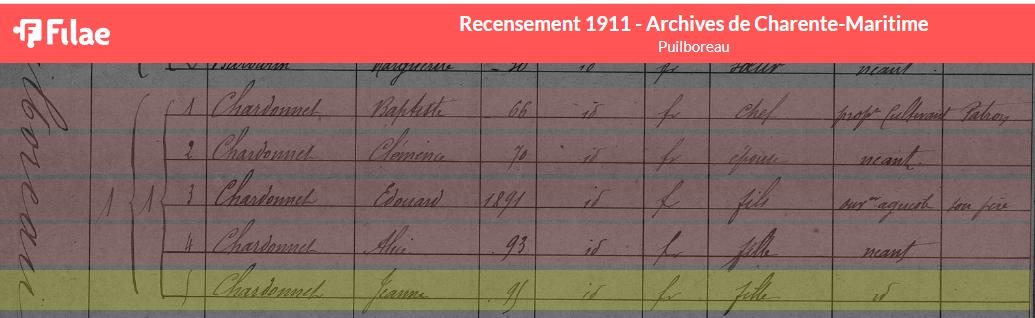 Filae
Recensement 1911 - Archives de Charente-Maritime
Puilboreau
Marguerite id fr sœur néant
1 1 1 Chardonnet Baptiste 66 id fr chef propre Cultivant Patron
2 Chardonnet Clémence 70 id fr épouse néant
3 Chardonnet Edouard 1891 id f fils ouvr agricole son père
4 Chardonnet Alice 93 id f fille néant
5 Chardonnet Jeanne 95 id fr fille id